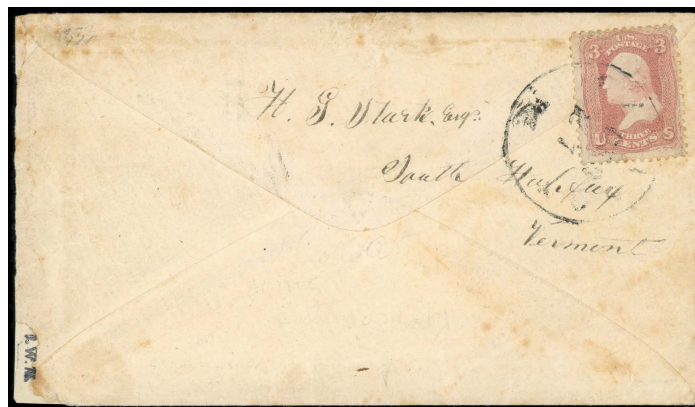 3 U.S. 3
POSTAGE
U THREE S
CENTS
H. S. Stark, Esq.
South Halifax
Vermont